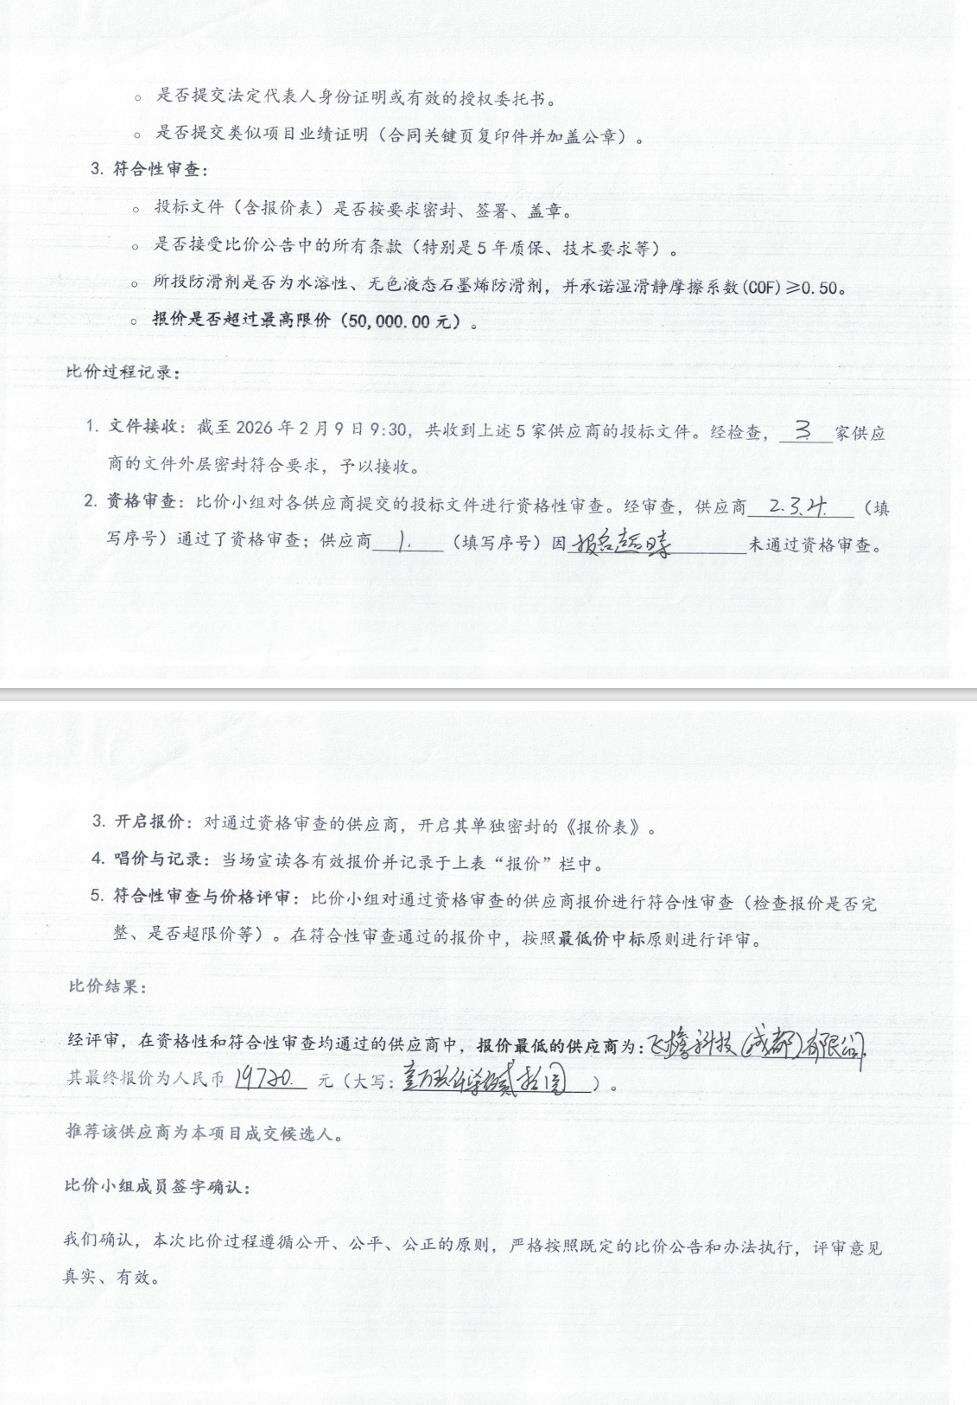 。是否提交法定代表人身份证明或有效的授权委托书。
。是否提交类似项目业绩证明（合同关键页复印件并加盖公章）。
3. 符合性审查：
。投标文件（含报价表）是否按要求密封、签署、盖章。
。是否接受比价公告中的所有条款（特别是5年质保、技术要求等）。
。所投防滑剂是否为水溶性、无色液态石墨烯防滑剂，并承诺湿滑静摩擦系数(COF)≥0.50。
。报价是否超过最高限价（50,000.00元）。
比价过程记录：
1. 文件接收：截至2026年2月9日9:30，共收到上述5家供应商的投标文件。经检查，3家供应
商的文件外层密封符合要求，予以接收。
2. 资格审查：比价小组对各供应商提交的投标文件进行资格性审查。经审查，供应商2.3.4.（填
写序号）通过了资格审查；供应商1.（填写序号）因报名未通过资格审查。
3. 开启报价：对通过资格审查的供应商，开启其单独密封的《报价表》。
4. 唱价与记录：当场宣读各有效报价并记录于上表“报价”栏中。
5. 符合性审查与价格评审：比价小组对通过资格审查的供应商报价进行符合性审查（检查报价是否完
整、是否超限价等）。在符合性审查通过的报价中，按照最低价中标原则进行评审。
比价结果：
经评审，在资格性和符合性审查均通过的供应商中，报价最低的供应商为：飞科技（成都）有限公司.
其最终报价为人民币19720.元（大写：壹万玖仟柒佰贰拾圆）。
推荐该供应商为本项目成交候选人。
比价小组成员签字确认：
我们确认，本次比价过程遵循公开、公平、公正的原则，严格按照既定的比价公告和办法执行，评审意见
真实、有效。